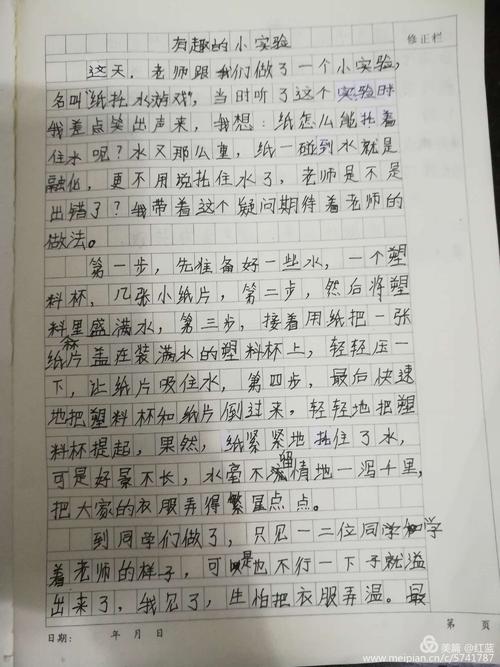 有趣的小实验
修正栏
这天，老师跟我们做了一个小实验，
名叫"纸托水游戏"，当时听了这个实验时
我差点笑出声来，我想：纸怎么能托着
住水呢？水又那么重，纸一碰到水就是
融化，更不用说托住水了，老师是不是
出错了？我带着这个疑问期待着老师的
做法。
第一步，先准备好一些水，一个塑
料杯，几张小纸片，第二步，然后将塑
料里盛满水，第三步，接着用纸把一张
纸片盖在装满水的塑料杯上，轻轻压一
下，让纸片吸住水，第四步，最后快速
地把塑料杯和纸片倒过来，轻轻地把塑
料杯提起，果然，纸紧紧地托住了水，
可是好景不长，水毫不留情地一泻千里，
把大家的衣服弄得繁星点点。
到同学们做了，只见一二位同学学
着老师的样子，可是也不行一下子就溢
出来了，我见了，生怕把衣服弄湿。最
日期： 年 月 日
第 页
美篇 @红蓝
www.meipian.cn/c/5741787